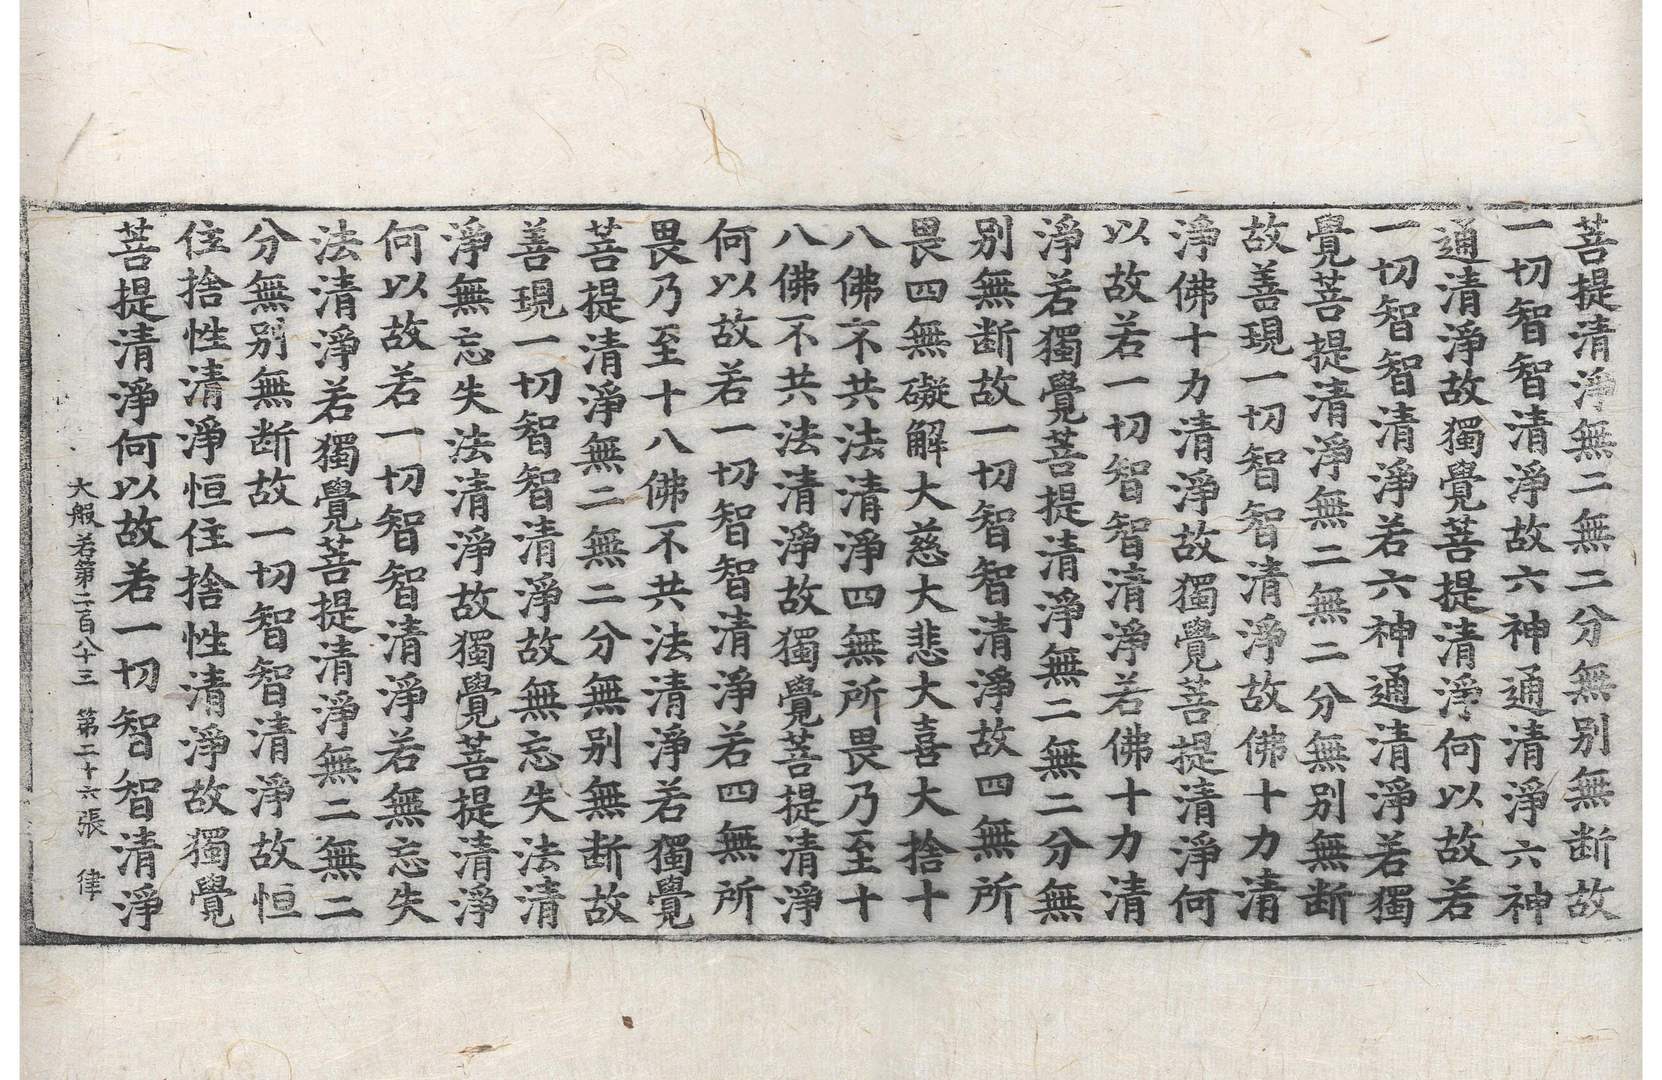 菩提清淨無二無二分無別無斷故
一切智智清淨故六神通清淨六神
通清淨故獨覺菩提清淨何以故若
一切智智清淨若六神通清淨若獨
覺菩提清淨無二無二分無別無斷
故善現一切智智清淨故佛十力清
淨佛十力清淨故獨覺菩提清淨何
以故若一切智智清淨若佛十力清
淨若獨覺菩提清淨無二無二分無
別無斷故一切智智清淨故四無所
畏四無礙解大慈大悲大喜大捨十
八佛不共法清淨四無所畏乃至十
八佛不共法清淨故獨覺菩提清淨
何以故若一切智智清淨若四無所
畏乃至十八佛不共法清淨若獨覺
菩提清淨無二無二分無別無斷故
善現一切智智清淨故無忘失法清
淨無忘失法清淨故獨覺菩提清淨
何以故若一切智智清淨若無忘失
法清淨若獨覺菩提清淨無二無二
分無別無斷故一切智智清淨故恒
住捨性清淨恒住捨性清淨故獨覺
菩提清淨何以故若一切智智清淨
大般若第二百八十三 第二十六張 律